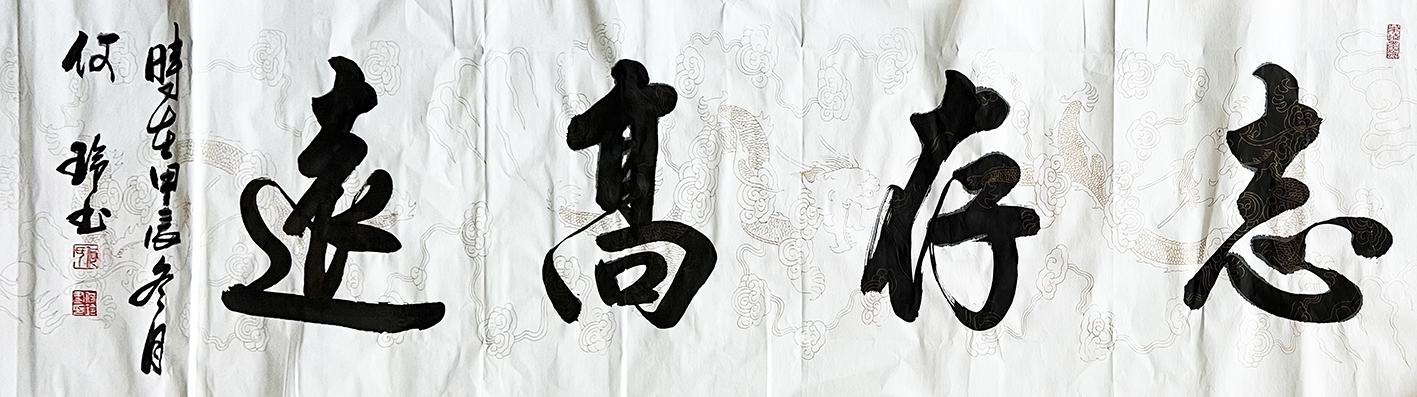 志存高遠
時在甲辰冬月
何玲书